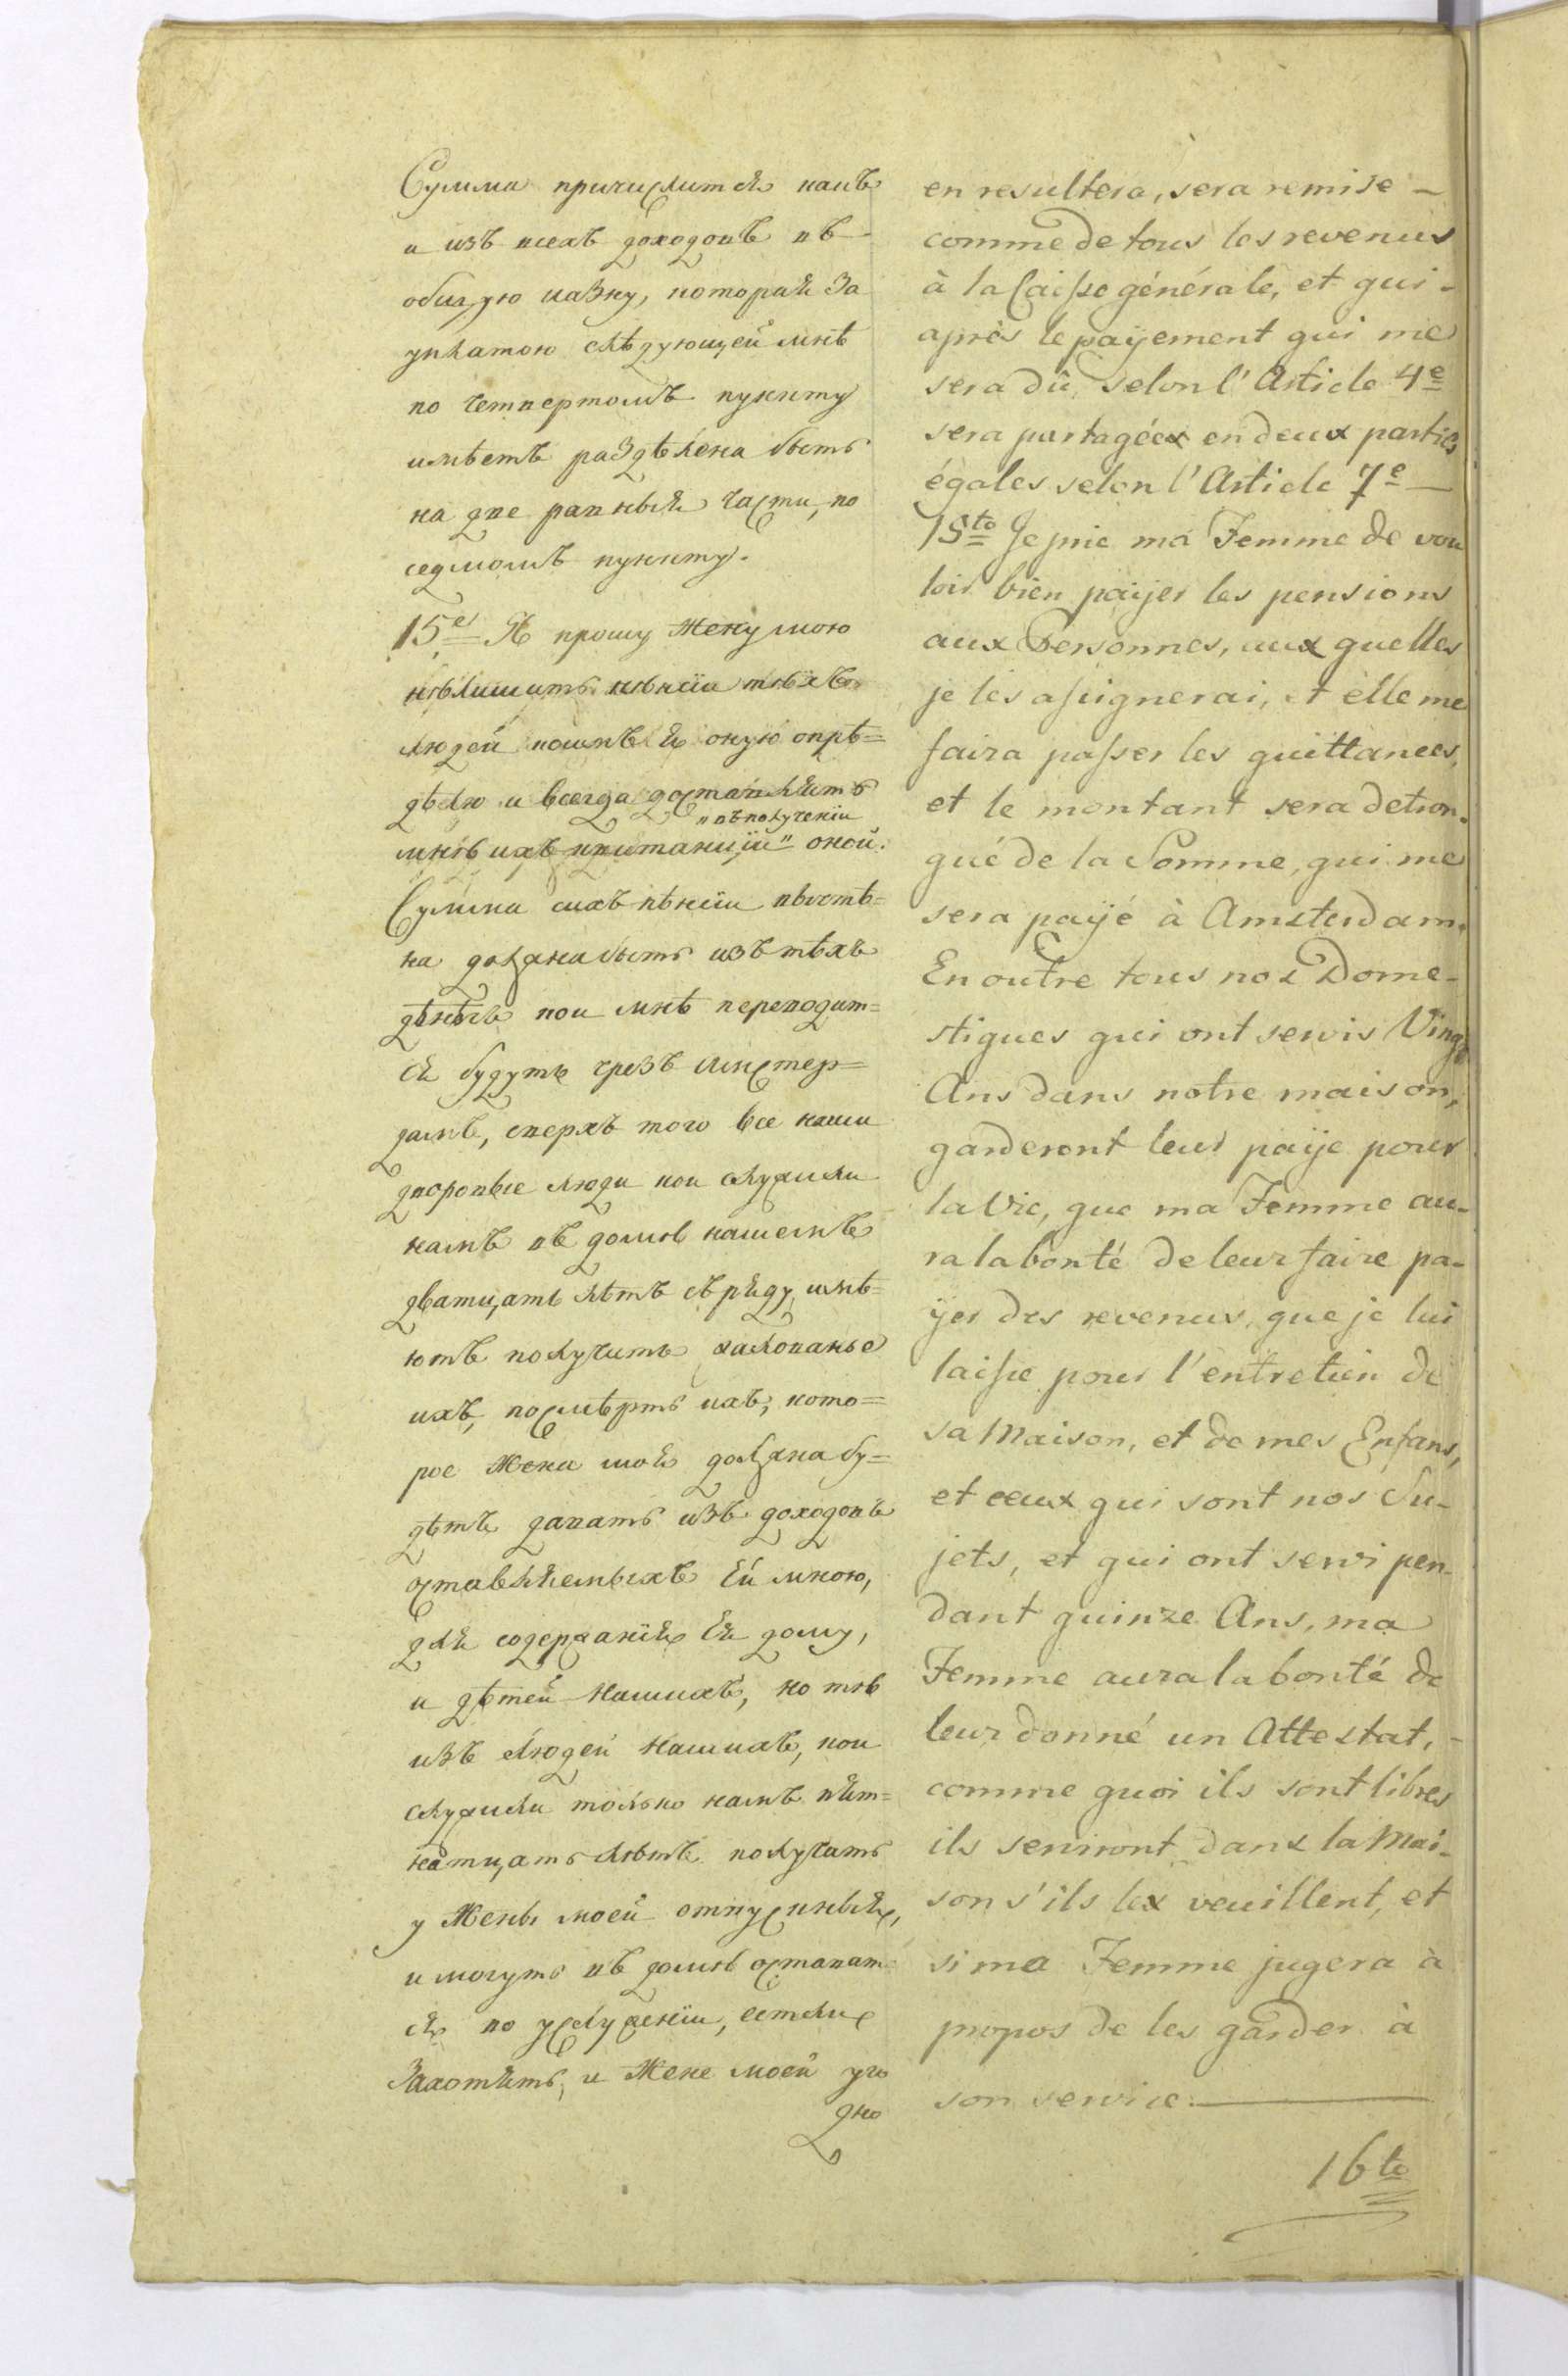 Сумма причислится какъ
и изъ всехъ доходовъ въ
общую казну, которая за
уплатою слѣдующей мнѣ
по четвертомъ пункту
имѣетъ раздѣлена быть
на две равныя части, по
седмомъ пункту.
15е Я прошу жену мою
нѣлишить пѣнсіи тѣхъ
людей коимъ я оную опрѣ=
дѣлю и всегда доставлять
"въ полученіи
мнѣ ихъ квитанціи" оной.
Сумма сихъ пѣнсіи вычтѣ=
на должна быть изъ тѣхъ
дѣнѣгъ кои мнѣ переводит=
ся будутъ чрезъ Амстер=
дамъ, сверхъ того все наши
дворовые люди кои служили
намъ въ домѣ нашемъ
дватцать лѣтъ съ ряду имѣ=
ютъ получить жалованье
ихъ, посмѣрть ихъ, кото=
рое жена моя должна бу=
дѣтъ давать изъ доходовъ
оставляемыхъ Ей мною,
для содержанія Ея дому,
и дѣтей нашихъ, но тѣ
изъ людей нашихъ, кои
служили только намъ пят=
натцать лѣтъ получатъ
у жены моей отпускныя,
и могутъ въ домѣ остават=
ся по услуженіи, естли
захотятъ, и жене моей уго
дно
en resultera, sera remise –
comme de tous les revenus
à la Caisse générale, et qui –
après le payement qui me
sera dû, selon l'Article 4e
sera partagéex en deux parties
égales selon l'Article 7e —
15to Je prie ma Femme de vou
loir bien paÿer les pensions
aux Personnes, aux quelles
je les assignerai, et elle me
faira passer les quittances,
et le montant sera detron-
qué de la Somme, qui me
sera paÿé à Amsterdam.
En outre tous nos Dome-
stiques qui ont servis Vingt
Ans dans notre maison,
garderont leur paÿe pour
la Vie, que ma Femme au-
ra la bonté de leur faire pa-
ÿer des revenus, que je lui
laisse pour l'entretien de
sa Maison, et de mes Enfans,
et ceux qui sont nos Su-
jets, et qui ont servi pen-
dant quinze Ans, ma
Femme aura la bonté de
leur donné un Attestat, –
comme quoi ils sont libres
ils serviront dans la Mai-
son s'ils lex veuillent, et
si ma Femme jugera à
propos de les garder à
son service. —
16to